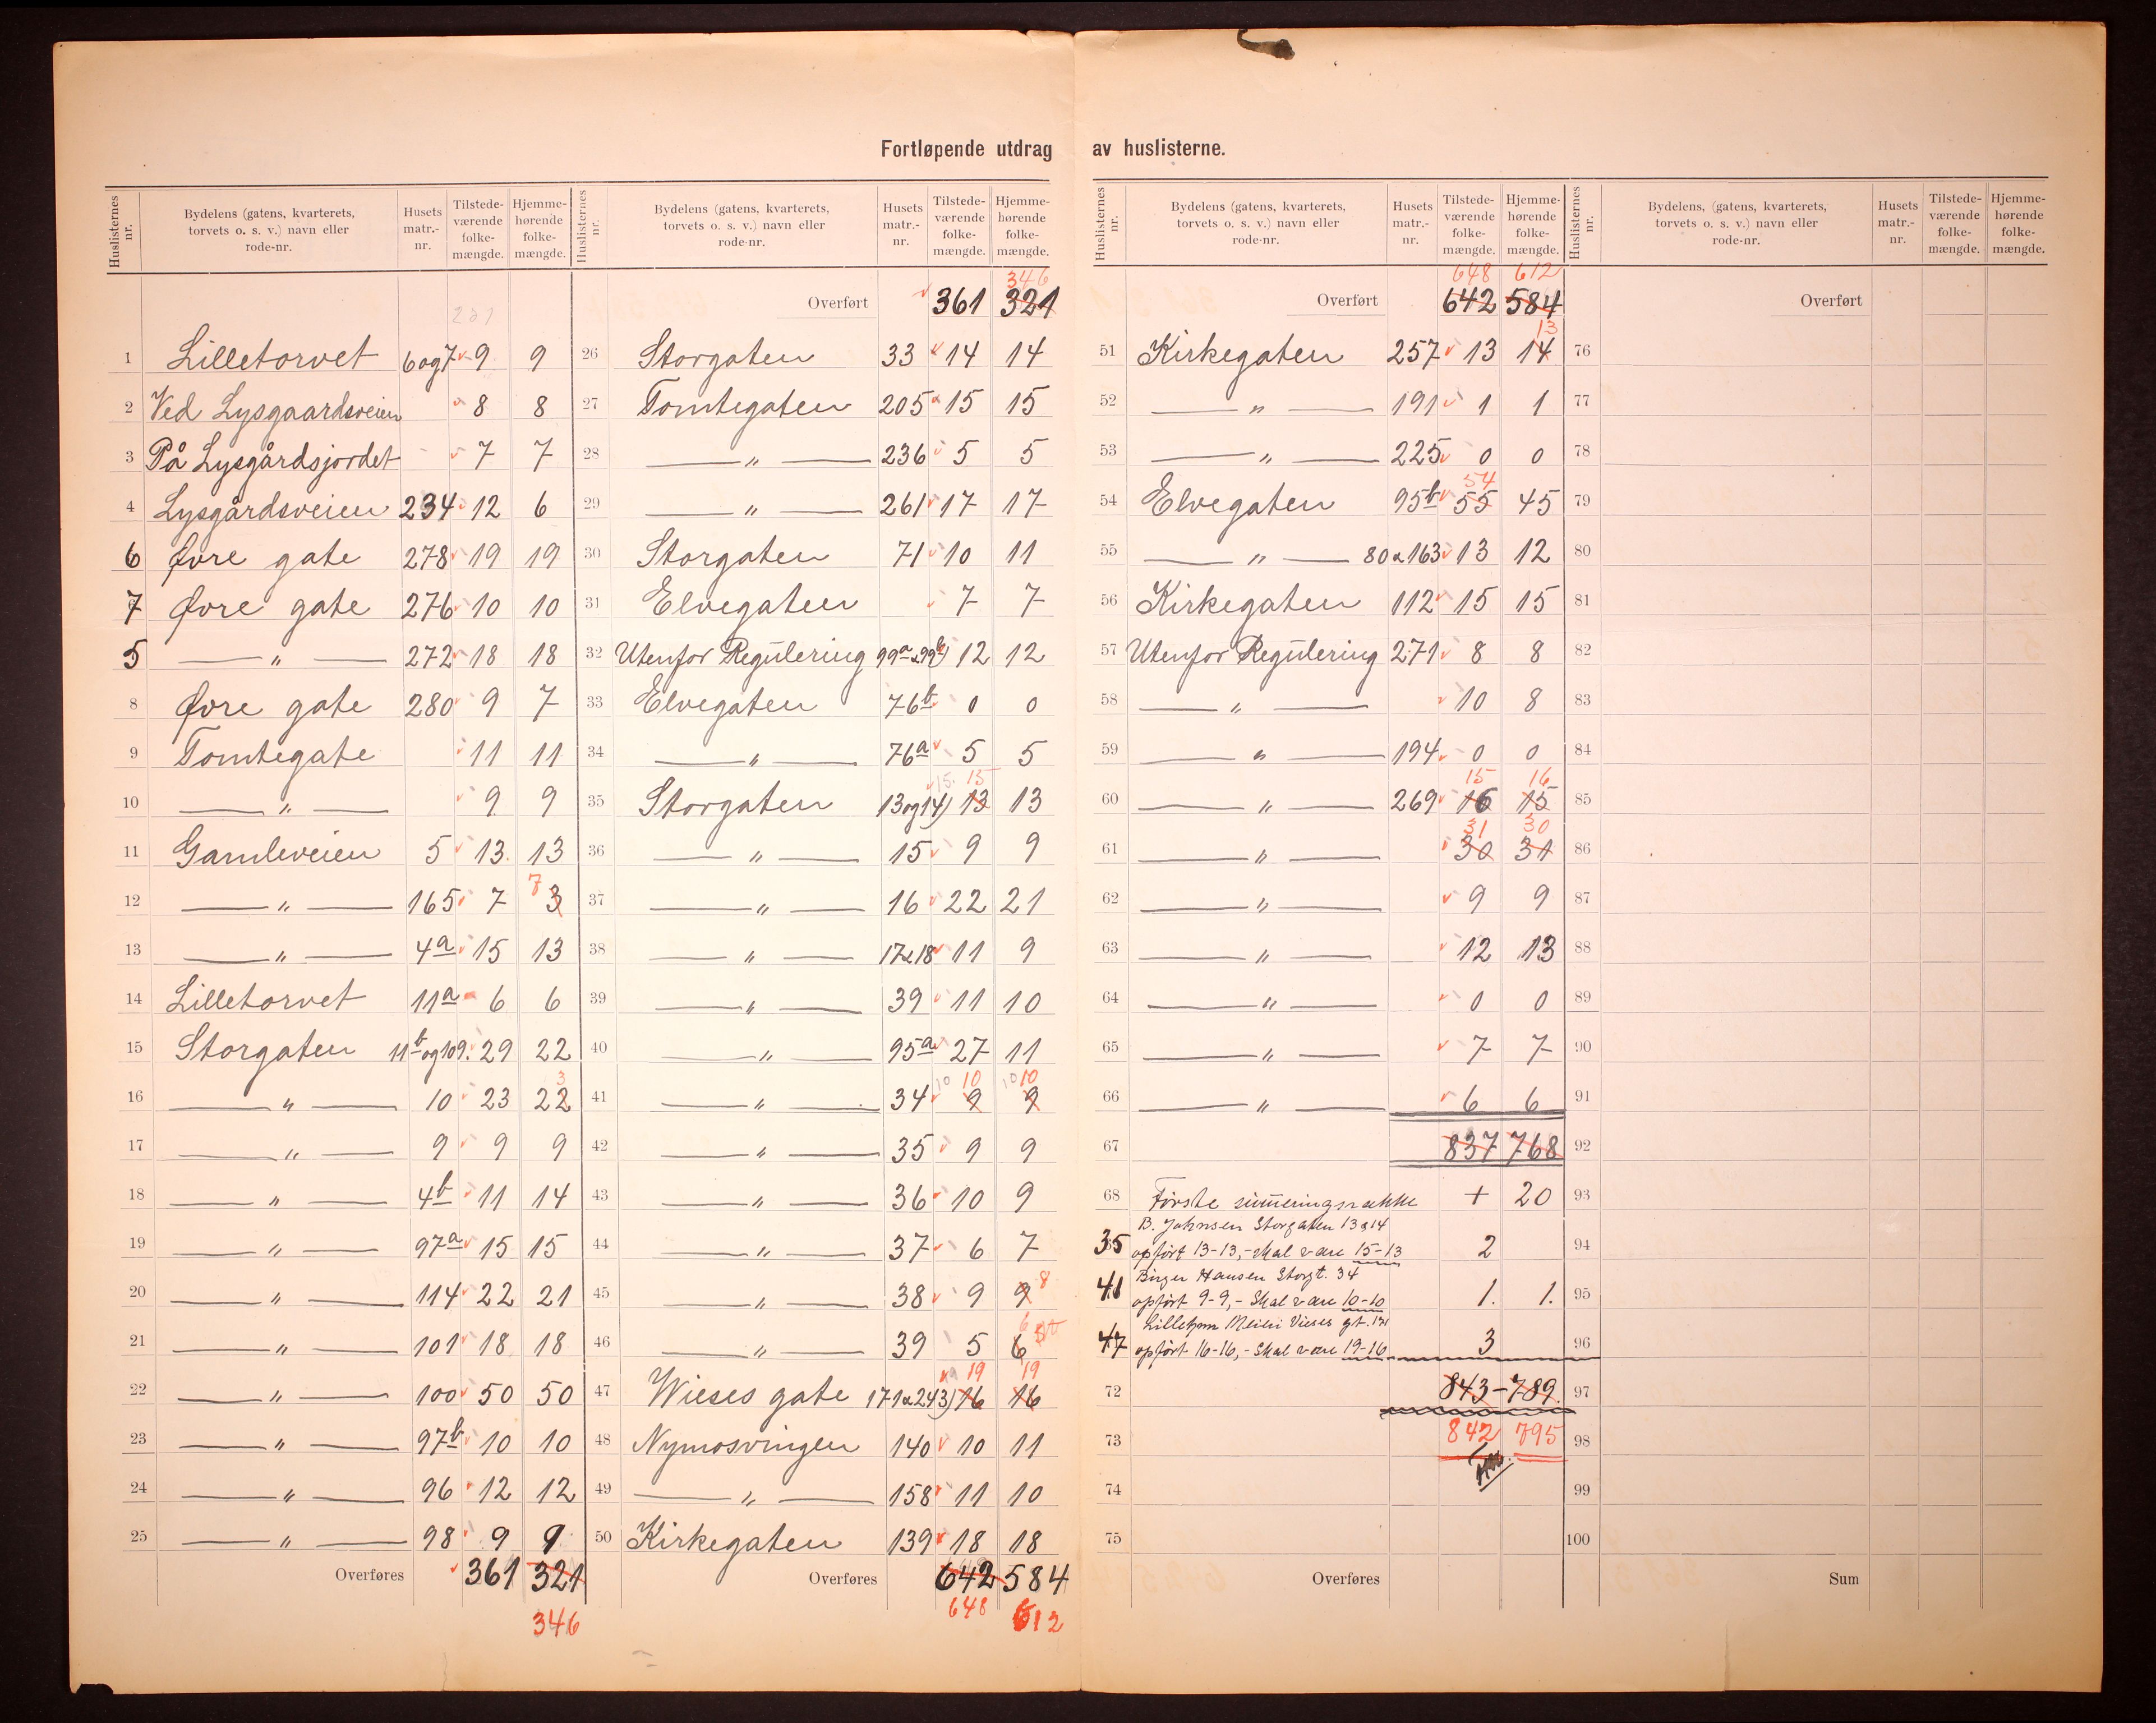 Fortløpende utdrag av huslisterne.
Huslisternes nr. | Bydelens (gatens, kvarterets, torvets o. s. v.) navn eller rode-nr. | Husets matr.-nr. | Tilstede-værende folke-mængde. | Hjemme-hørende folke-mængde.
221
1 Lilletorvet 6 og 7 9 9
2 Ved Lysgaardsveien 8 8
3 På Lysgårdsjordet - 7 7
4 Lysgårdsveien 234 12 6
6 Øvre gate 278 19 19
7 Øvre gate 276 10 10
5 — " — 272 18 18
8 Øvre gate 280 9 7
9 Tomtegate 11 11
10 — " — 9 9
11 Gamleveien 5 13 13
12 — " — 165 7 3 7
13 — " — 4a 15 13
14 Lilletorvet 11a 6 6
15 Storgaten 11b og 109. 29 22
16 — " — 10 23 22 3
17 — " — 9 9 9
18 — " — 4b 11 14
19 — " — 97a 15 15
20 — " — 114 22 21
21 — " — 101 18 18
22 — " — 100 50 50
23 — " — 97b 10 10
24 — " — 96 12 12
25 — " — 98 9 9
Overføres 361 321
346
Huslisternes nr. | Bydelens (gatens, kvarterets, torvets o. s. v.) navn eller rode-nr. | Husets matr.-nr. | Tilstede-værende folke-mængde. | Hjemme-hørende folke-mængde.
346
Overført 361 321
26 Storgaten 33 14 14
27 Tomtegaten 205 15 15
28 — " — 236 5 5
29 — " — 261 17 17
30 Storgaten 71 10 11
31 Elvegaten 7 7
32 Utenfor Regulering 99a & 99b) 12 12
33 Elvegaten 76b 0 0
34 — " — 76a 5 5
35 Storgaten 13 og 14) 13 13 15. 15
36 — " — 15 9 9
37 — " — 16 22 21
38 — " — 17 & 18 11 9
39 — " — 39 11 10
40 — " — 95a 27 11
41 — " — 34 9 9 10 10 10 10
42 — " — 35 9 9
43 — " — 36 10 9
44 — " — 37 6 7
45 — " — 38 9 9 8
46 — " — 39 5 6 6
47 Wieses gate 171 & 243) 16 16 19 19
48 Nymosvingen 140 10 11
49 — " — 158 11 10
50 Kirkegaten 139 18 18
Overføres 642 584
648 612
Huslisternes nr. | Bydelens (gatens, kvarterets, torvets o. s. v.) navn eller rode-nr. | Husets matr.-nr. | Tilstede-værende folke-mængde. | Hjemme-hørende folke-mængde.
648 612
Overført 642 584
51 Kirkegaten 257 13 14 13
52 — " — 191 1 1
53 — " — 225 0 0
54 Elvegaten 95b 55 45 54
55 — " — 80 & 163 13 12
56 Kirkegaten 112 15 15
57 Utenfor Regulering 271 8 8
58 — " — 10 8
59 — " — 194 0 0
60 — " — 269 16 15 15 16
61 — " — 30 31 31 30
62 — " — 9 9
63 — " — 12 13
64 — " — 0 0
65 — " — 7 7
66 — " — 6 6
67 837 768
68 Første summeringsrække + 20
B. Johnsen Storgaten 13 & 14
35 opført 13-13,- skal være 15-13 2
Birger Hansen Storgt. 34
41 opført 9-9,- Skal være 10-10 1. 1.
47 opført 16-16,- Skal være 19-16 3
72 843-789.
73 842 795
74
75
Overføres
Huslisternes nr. | Bydelens, (gatens, kvarterets, torvets o. s. v.) navn eller rode-nr. | Husets matr.-nr. | Tilstede-værende folke-mængde. | Hjemme-hørende folke-mængde.
Overført
76
77
78
79
80
81
82
83
84
85
86
87
88
89
90
91
92
93
94
95
96
97
98
99
100
Sum